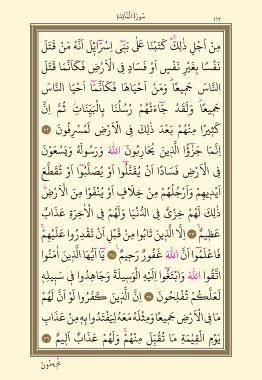 ١١٢ سُورَةُ الْمَائِدَةِ
مِنْ اَجْلِ ذٰلِكَۚۛ كَتَبْنَا عَلٰى بَنٖٓى اِسْرَٓائٖلَ اَنَّهُ مَنْ قَتَلَ
نَفْسًا بِغَيْرِ نَفْسٍ اَوْ فَسَادٍ فِى الْاَرْضِ فَكَاَنَّمَا قَتَلَ
النَّاسَ جَمٖيعًاۜ وَمَنْ اَحْيَاهَا فَكَاَنَّمَٓا اَحْيَا النَّاسَ
جَمٖيعًاۜ وَلَقَدْ جَٓاءَتْهُمْ رُسُلُنَا بِالْبَيِّنَاتِۘ ثُمَّ اِنَّ
كَثٖيرًا مِنْهُمْ بَعْدَ ذٰلِكَ فِى الْاَرْضِ لَمُسْرِفُونَ ﴿٣٢﴾
اِنَّمَا جَزٰٓؤُا الَّذٖينَ يُحَارِبُونَ اللّٰهَ وَرَسُولَهُ وَيَسْعَوْنَ
فِى الْاَرْضِ فَسَادًا اَنْ يُقَتَّلُٓوا اَوْ يُصَلَّبُٓوا اَوْ تُقَطَّعَ
اَيْدٖيهِمْ وَاَرْجُلُهُمْ مِنْ خِلَافٍ اَوْ يُنْفَوْا مِنَ الْاَرْضِۜ
ذٰلِكَ لَهُمْ خِزْىٌ فِى الدُّنْيَا وَلَهُمْ فِى الْاٰخِرَةِ عَذَابٌ
عَظٖيمٌۙ ﴿٣٣﴾ اِلَّا الَّذٖينَ تَابُوا مِنْ قَبْلِ اَنْ تَقْدِرُوا عَلَيْهِمْۚ
فَاعْلَمُٓوا اَنَّ اللّٰهَ غَفُورٌ رَحٖيمٌ۟ ﴿٣٤﴾ يَٓا اَيُّهَا الَّذٖينَ اٰمَنُوا
اتَّقُوا اللّٰهَ وَابْتَغُٓوا اِلَيْهِ الْوَسٖيلَةَ وَجَاهِدُوا فٖى سَبٖيلِهٖ
لَعَلَّكُمْ تُفْلِحُونَ ﴿٣٥﴾ اِنَّ الَّذٖينَ كَفَرُوا لَوْ اَنَّ لَهُمْ
مَا فِى الْاَرْضِ جَمٖيعًا وَمِثْلَهُ مَعَهُ لِيَفْتَدُوا بِهٖ مِنْ عَذَابِ
يَوْمِ الْقِيٰمَةِ مَا تُقُبِّلَ مِنْهُمْۚ وَلَهُمْ عَذَابٌ اَلٖيمٌ ﴿٣٦﴾
يُرٖيدُونَ